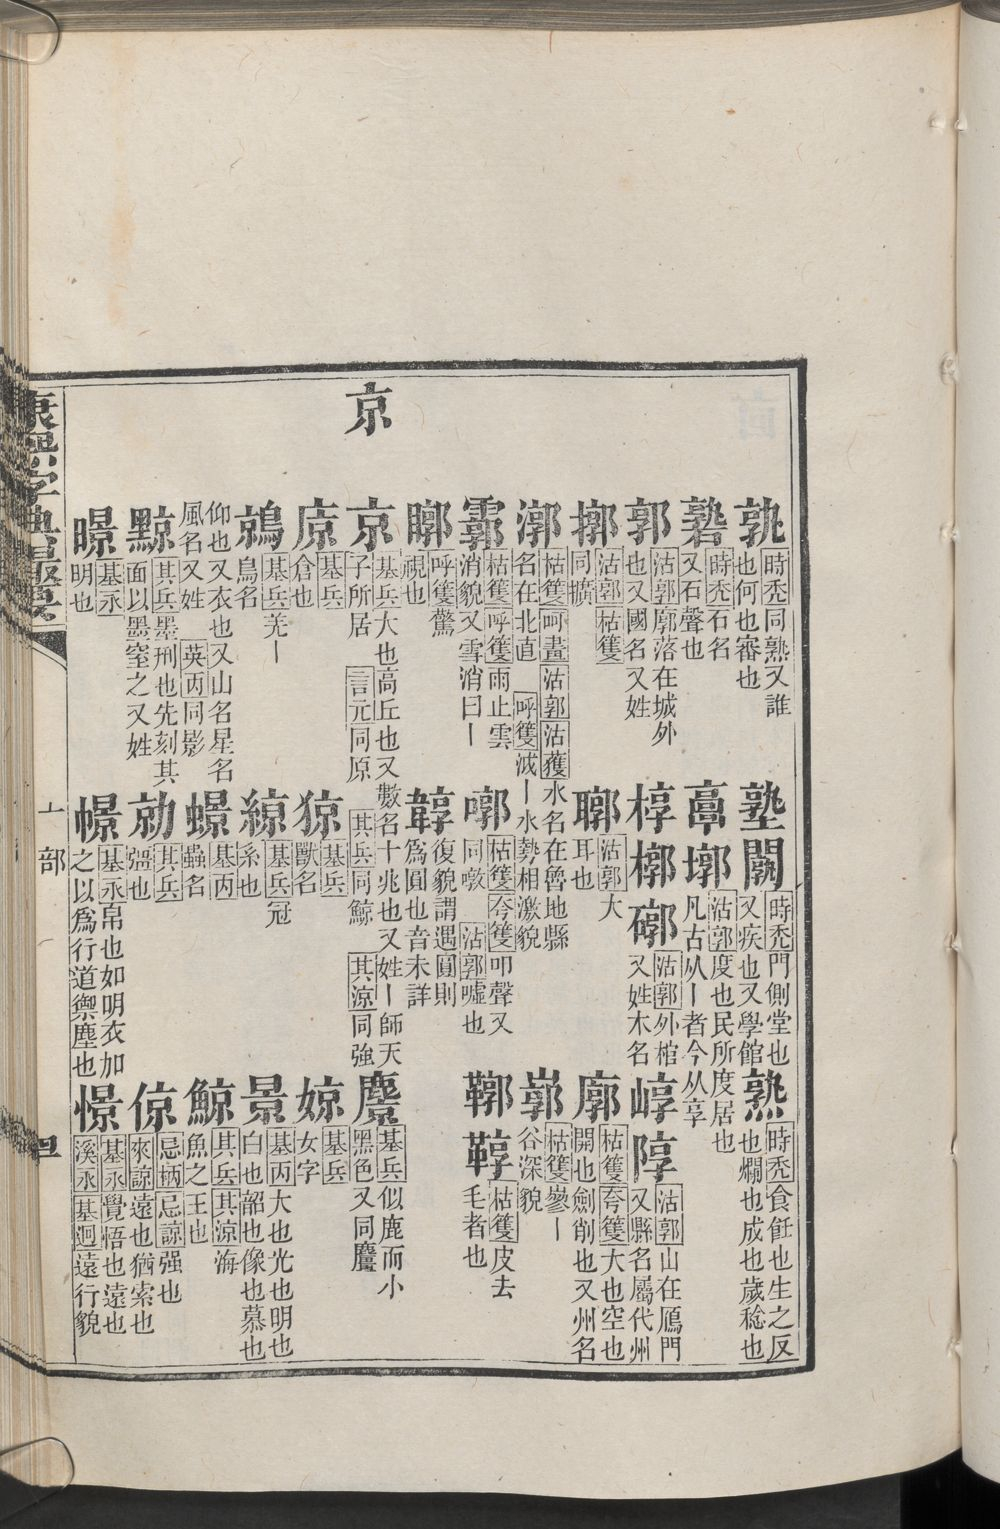 孰 時禿同熟又誰也何也審也 塾 闎 時禿門側堂也又疾也又學館 熟 時禿食飪也生之反也爛也成也歲稔也
時禿石名又石聲也 墎 沽郭度也民所度居也凡古从丨者今从享
郭 沽郭廓落在城外也又國名又姓 椁 槨 沽郭外棺又姓木名 崞 沽郭山在鴈門又縣名屬代州
摪 沽郭枯籆同擴 沽郭大耳也 廓 枯籆夸籆大也空也開也劍削也又州名
漷 枯籆呵畫沽郭沽蒦水名在魯地縣名在北直 呼籆滅丨水勢相激貌 枯籆㟥丨谷深貌
霩 枯籆呼籆雨止雲消貌又雪消曰丨 嘟 枯籆夸籆叩聲又同噋 沽郭嘘也 鞹 鞟 枯籆皮去毛者也
呼籆驚視也 復貌謂遇圓則爲圓也音未詳
京
京 基兵大也高丘也又數名十兆也又姓丨師天子所居 言元同原 其兵同鯨 其涼同強 麖 基兵似鹿而小黑色又同麠
㡷 基兵倉也 猄 基兵獸名 婛 基兵女字
鶁 基兵羌丨鳥名 綡 基兵冠系也 景 基丙大也光也明也白也韶也像也慕也
仰也又衣也又山名星名風名又姓 英丙同影 蟼 基丙蟲名 鯨 其兵其涼海魚之王也
黥 其兵墨刑也先刻其面以墨窒之又姓 勍 其兵彊也 倞 忌柄忌諒强也來諒遠也猶索也
暻 基永明也 幜 基永帛也如明衣加之以爲行道禦塵也 憬 基永覺悟也遠也溪永基迥遠行貌
康熙字典撮要
亠部
四